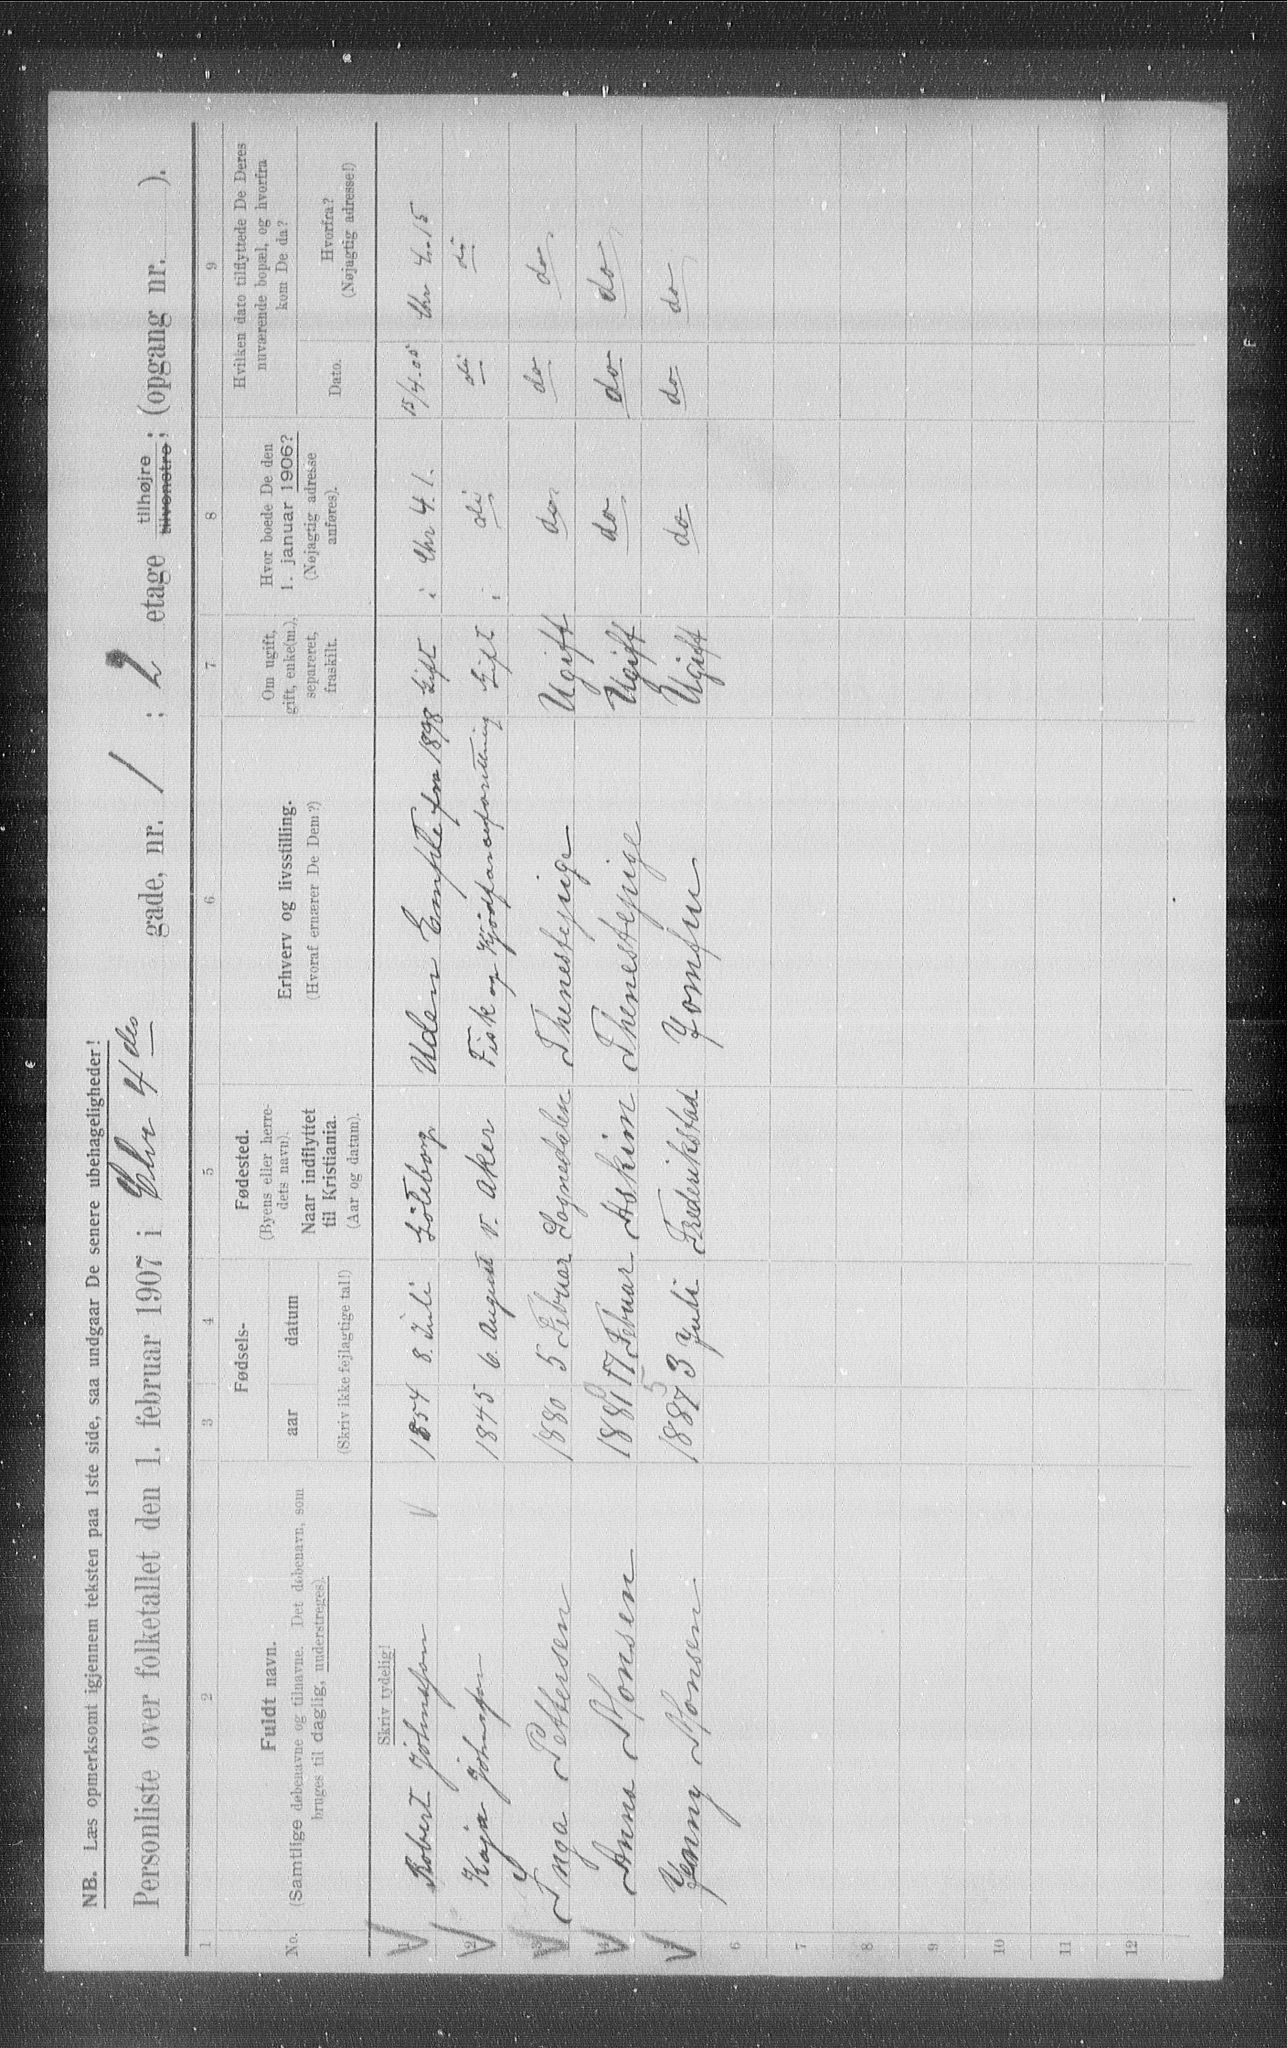 NB. Læs opmerksomt igjennem teksten paa 1ste side, saa undgaar De senere ubehageligheder!
Personliste over folketallet den 1. februar 1907 i Chr 4des gade, nr. 1 ; 2 etage tilhøjre tilvenstre; (opgang nr. ).
1 2 3 4 5 6 7 8 9
No.
Fuldt navn.
(Samtlige døbenavne og tilnavne. Det døbenavn, som
bruges til daglig, understreges).
Fødsels-
aar datum
(Skriv ikke fejlagtige tal!)
Fødested.
(Byens eller herre-
dets navn).
Naar indflyttet
til Kristiania.
(Aar og datum).
Erhverv og livsstilling.
(Hvoraf ernærer De Dem?)
Om ugift,
gift, enke(m.),
separeret,
fraskilt.
Hvor boede De den
1. januar 1906?
(Nøjagtig adresse
anføres).
Hvilken dato tilflyttede De Deres
nuværende bopæl, og hvorfra
kom De da?
Dato.
Hvorfra?
(Nøjagtig adresse!)
Skriv tydelig!
1 Robert Johnson 1854 8. Juli Göteborg Uden fra 1898 Gift i Chr 4. 1. 15/4.05 Chr 4. 15
2 Kaja Johnson 1845 6. August V. Aker Fisk og Gift i do do do
3 Inga Pettersen 1880 5 Februar Sognedalen Thenestepige Ugift do do do
4 Anna Monsen 17 Februar Askim Thenestepige Ugift do do do
5 Jenny Monsen 3 Juli Frederikstad Jomfru Ugift do do do
6
7
8
9
10
11
12